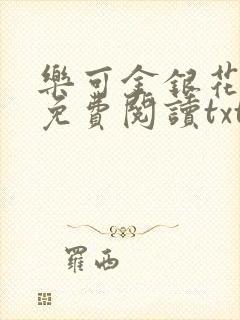 樂可金銀花
免費閱讀txt
羅西